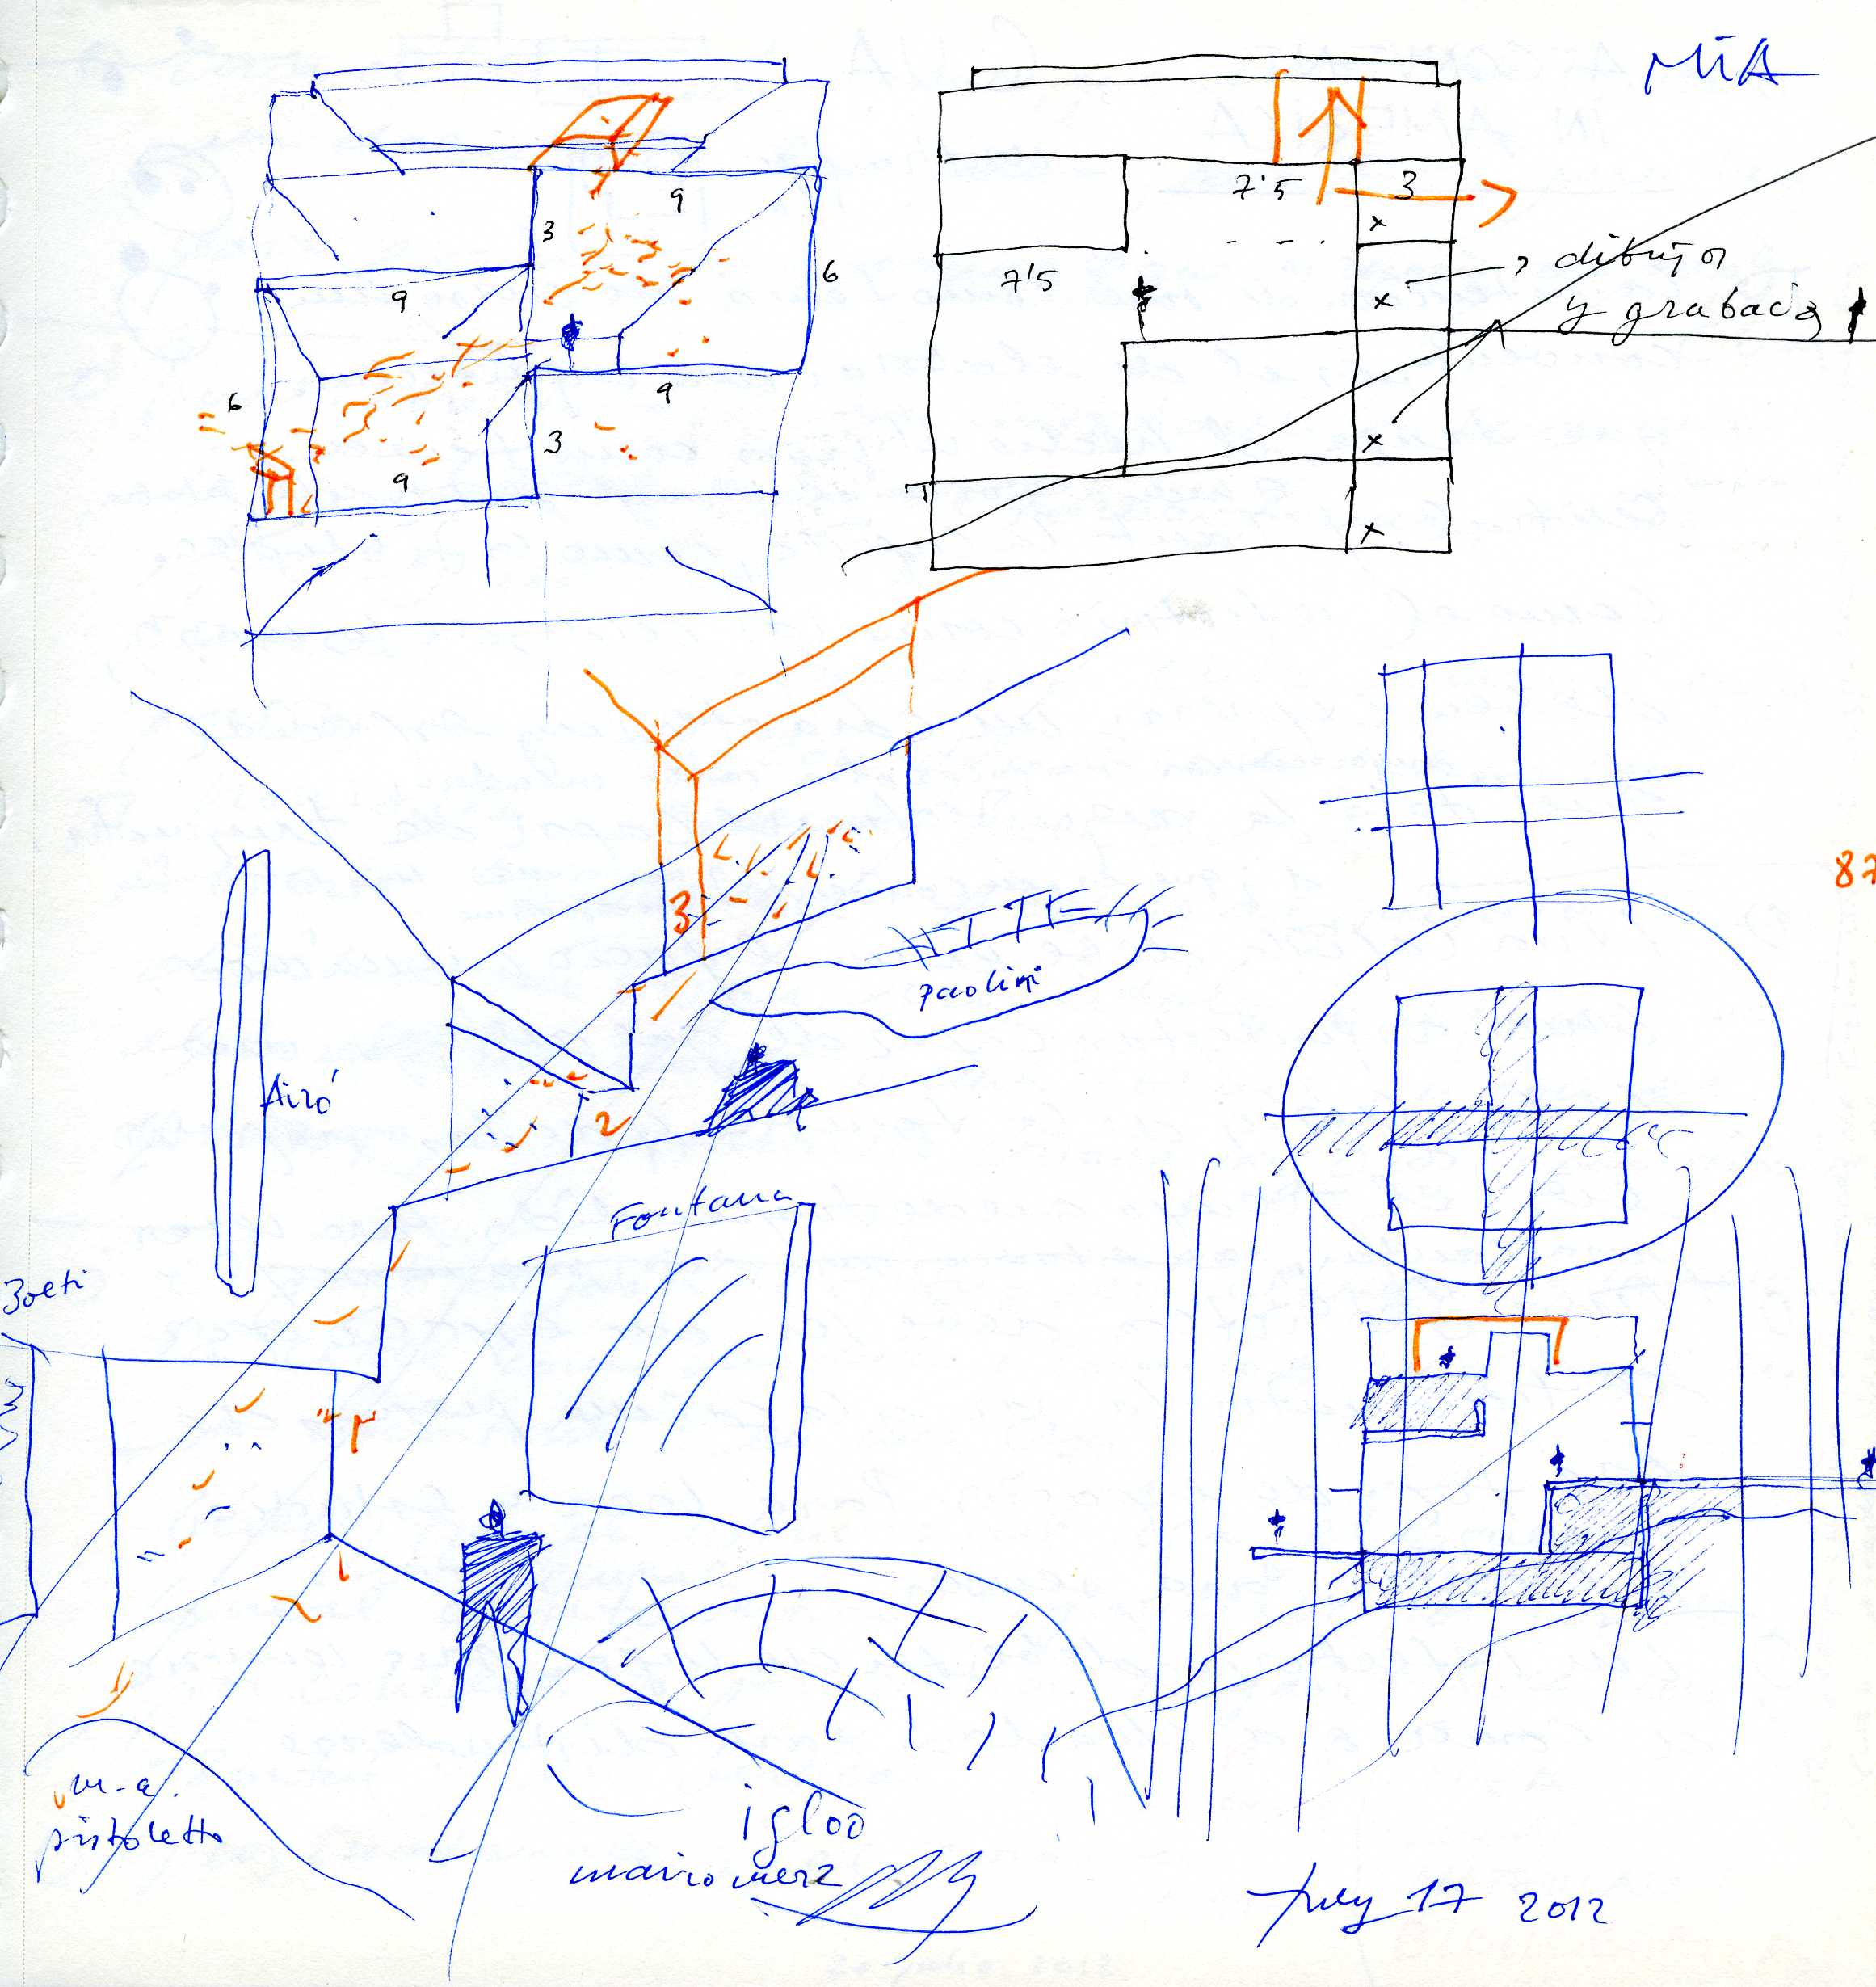 MIA
9
3
6
9
6
9
3
9
7'5
3
7'5
x
x
x
x
dibujos
y grabados
87
3
paolini
Airó
2
Fontana
Boeti
1
m-a.
pistoletto
igloo
mario merz
July 17 2012